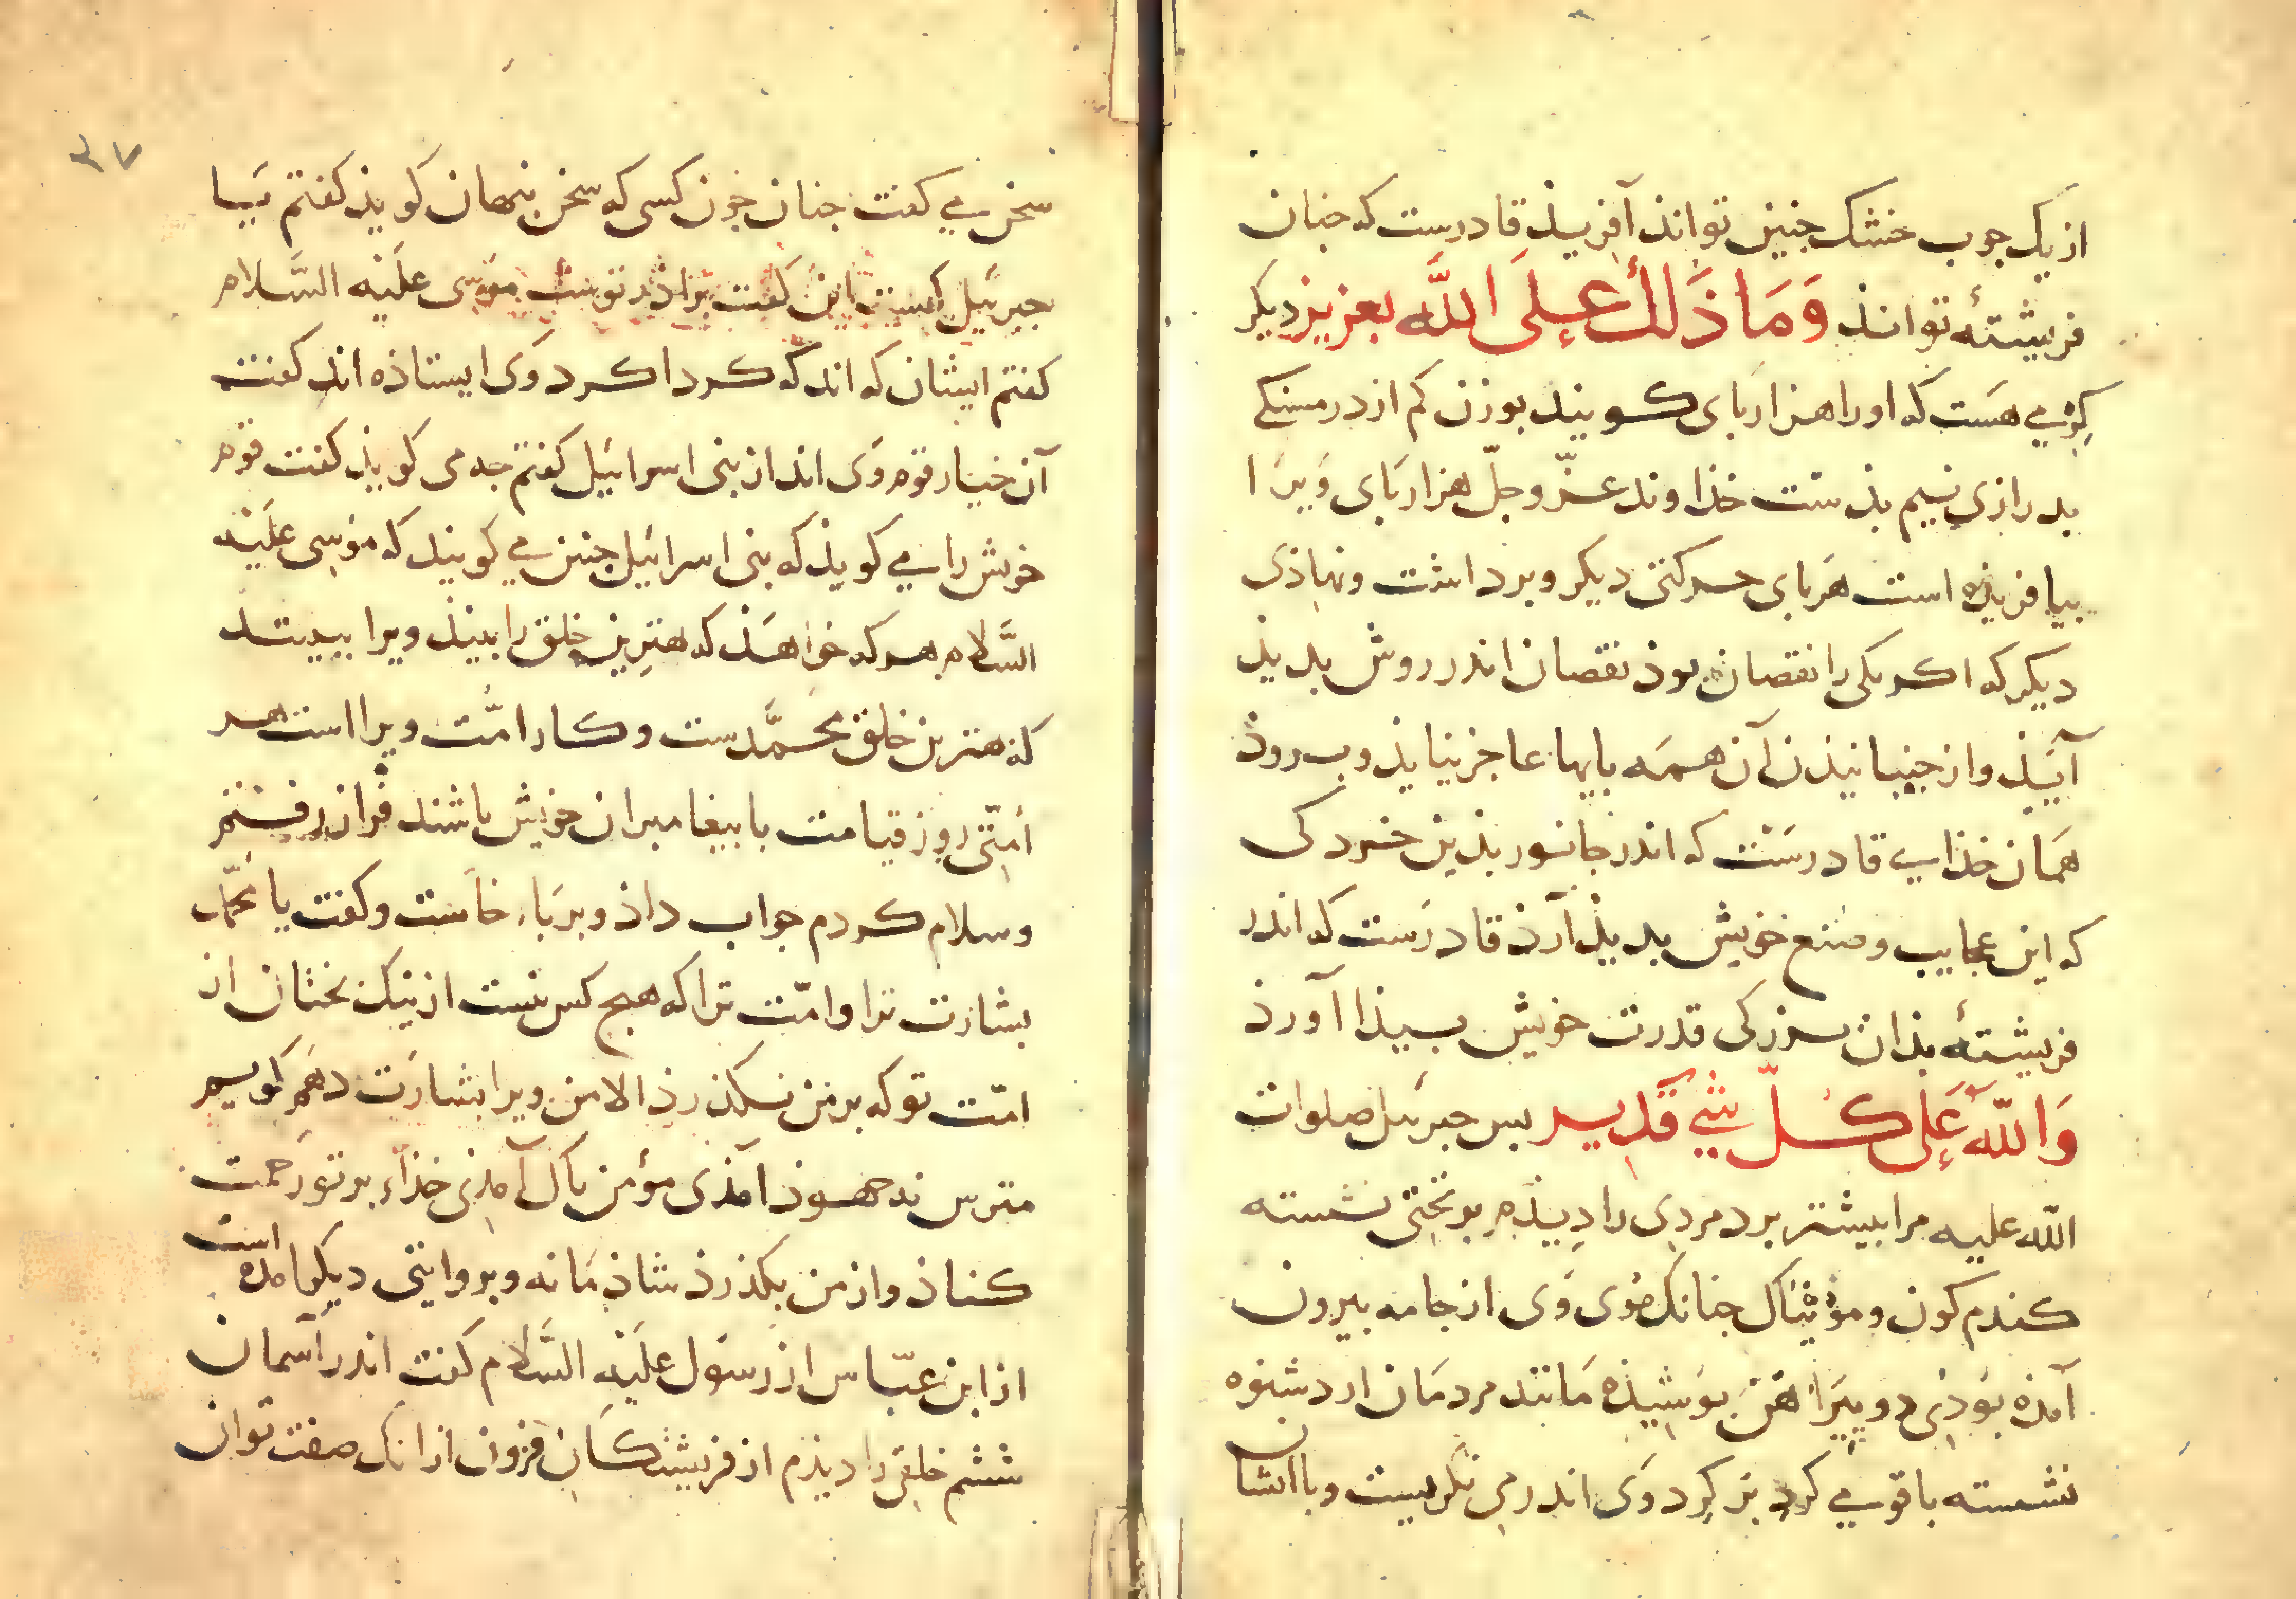 از یک جوب خشک جنین تواند آفریذ قادرست که جنان
فریشتهٔ تواند وَمَا ذَلكَ عَلَی اللَّه بعزیز دیکر
کرمی هست که اورا هزاربای کویند بوزن کم از درمسنکی
بدرازی نیم بذست خذاوند عزّ وجلّ هزار بای وَیرَا
بیافریذه است هَربای حرکتی دیکر وبرداشت ونهاذی
دیکر که اکر یکی را نقصان بوذ نقصان اندر روش بدیذ
آیَیذ واز جنبانیذن آن همه بایها عاجز نیایذ وب روذ
همَان خذایی قادرسَت که اندر جانور بذین خردکی
که این عجایب وصنع خویش بدیذ آرذ قادرَست که اندر
فریشتهٔ بذان بزرکی قدرت خویش بیذا آورذ
وَاللّه عَلَی کُلّ شیٍٔ قَدِیر بس جبرئیل صلوات
اللّه علیه مرا بیشتر برد مردِی را دِیذم بر تختِی نشسته
کندم کون ومؤیناک جنانک مُوی وَی از جامه بیرون
آمذه بوَذی دو پیرَاهَن بوشِیذه مَانند مردمَان ازدشنوه
نشسته باقومی کرد بَر کرِد وَی اندر می نکریست وباایشان
سخن می کفت جنان جون کسی که سخن بنهان کویذ کفتم یَیا
جبرئیل کیست این کَفت برَاذر توست موسَی علَیْه السَّلام
کفتم ایشان که اند که کرداکرد وَی ایستاذه اند کفت
آن خیار قوم وَی اند از بنی اسرائیل کفتم جه می کویذ کفت قوم
خوش را می کویذ که بنی اسرائیل جنین می کویند که موسِی علَیْه
السَّلام هر که خوَاهَذ که هترین خلق را بینذ ویرا ببیند
که هترین خلق محمَّدست وکار امُّت ویرا است هر
اُمِتّی روز قیامت با بیغامبران خویش باشند فراز رفتم
وسلام کردم جواب داذ وبربَاء خاَست وکفت یا محَمّد
بشارت ترا وامّت ترا که هیج کس نیست از نیک بختان از
امّت توکه برمَن نکذرذ الا من ویرا بشارَت دهَم کویم
مترس نه جهوذ آمَذی مؤمن باک آمذِی خذاَء بر تورَحمت
کناذ واز من بکذرذ شاذمَانه وبروایتی دیکر امده است
از ابن عبّاس از رسَول علَیْه السَّلام کفت اندر آسمان
ششم خلقِی را دیذم از فریشتکَان فزون ازانک صفت توان
٣٧